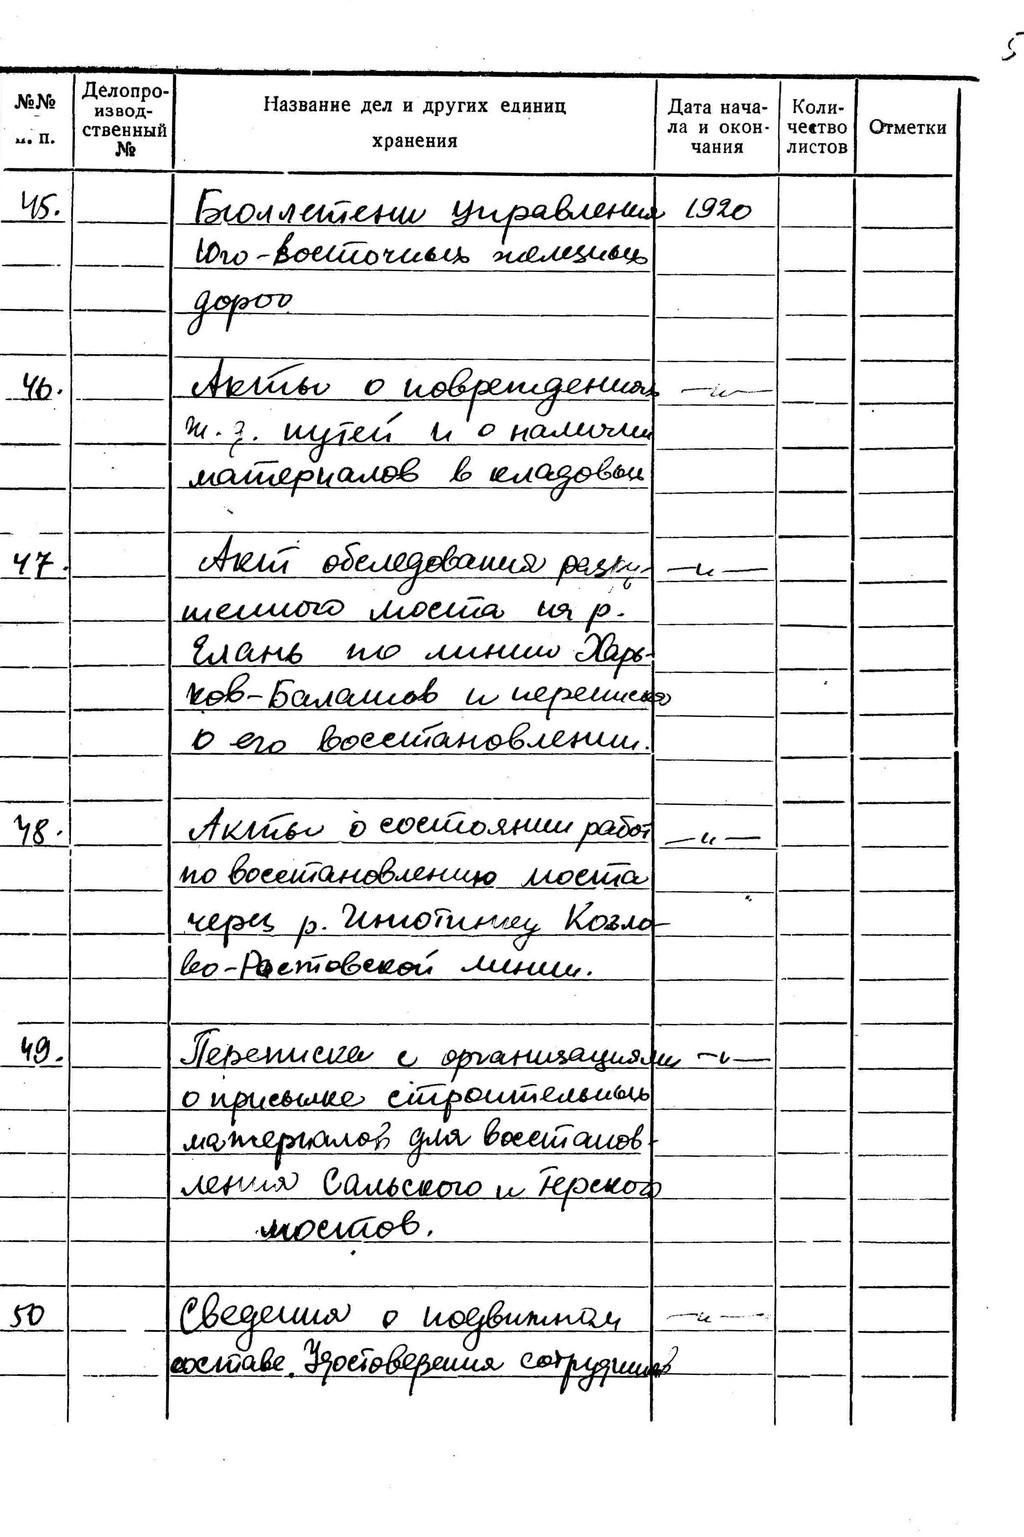 5
№№ п. п.
Делопро-
извод-
ственный
№
Название дел и других единиц
хранения
Дата нача-
ла и окон-
чания
Коли-
чество
листов
Отметки
45. Бюллетени управления 1920
Юго-восточных железных
дорог
46. Акты о повреждениях —"—
ж. д. путей и о наличии
материалов в кладовых
47. Акт обследования разру- —"—
шенного моста на р.
Елань по линии Харь-
ков-Балашов и переписка
о его восстановлении.
48. Акты о состоянии работ —"—
по восстановлению моста
через р. Козло-
во-Ростовской линии.
49. Переписка с организациями —"—
о присылке строительных
материалов для восстанов-
ления Сальского и Терского
мостов.
50 Сведения о подвижном —"—
составе. Удостоверения сотрудников